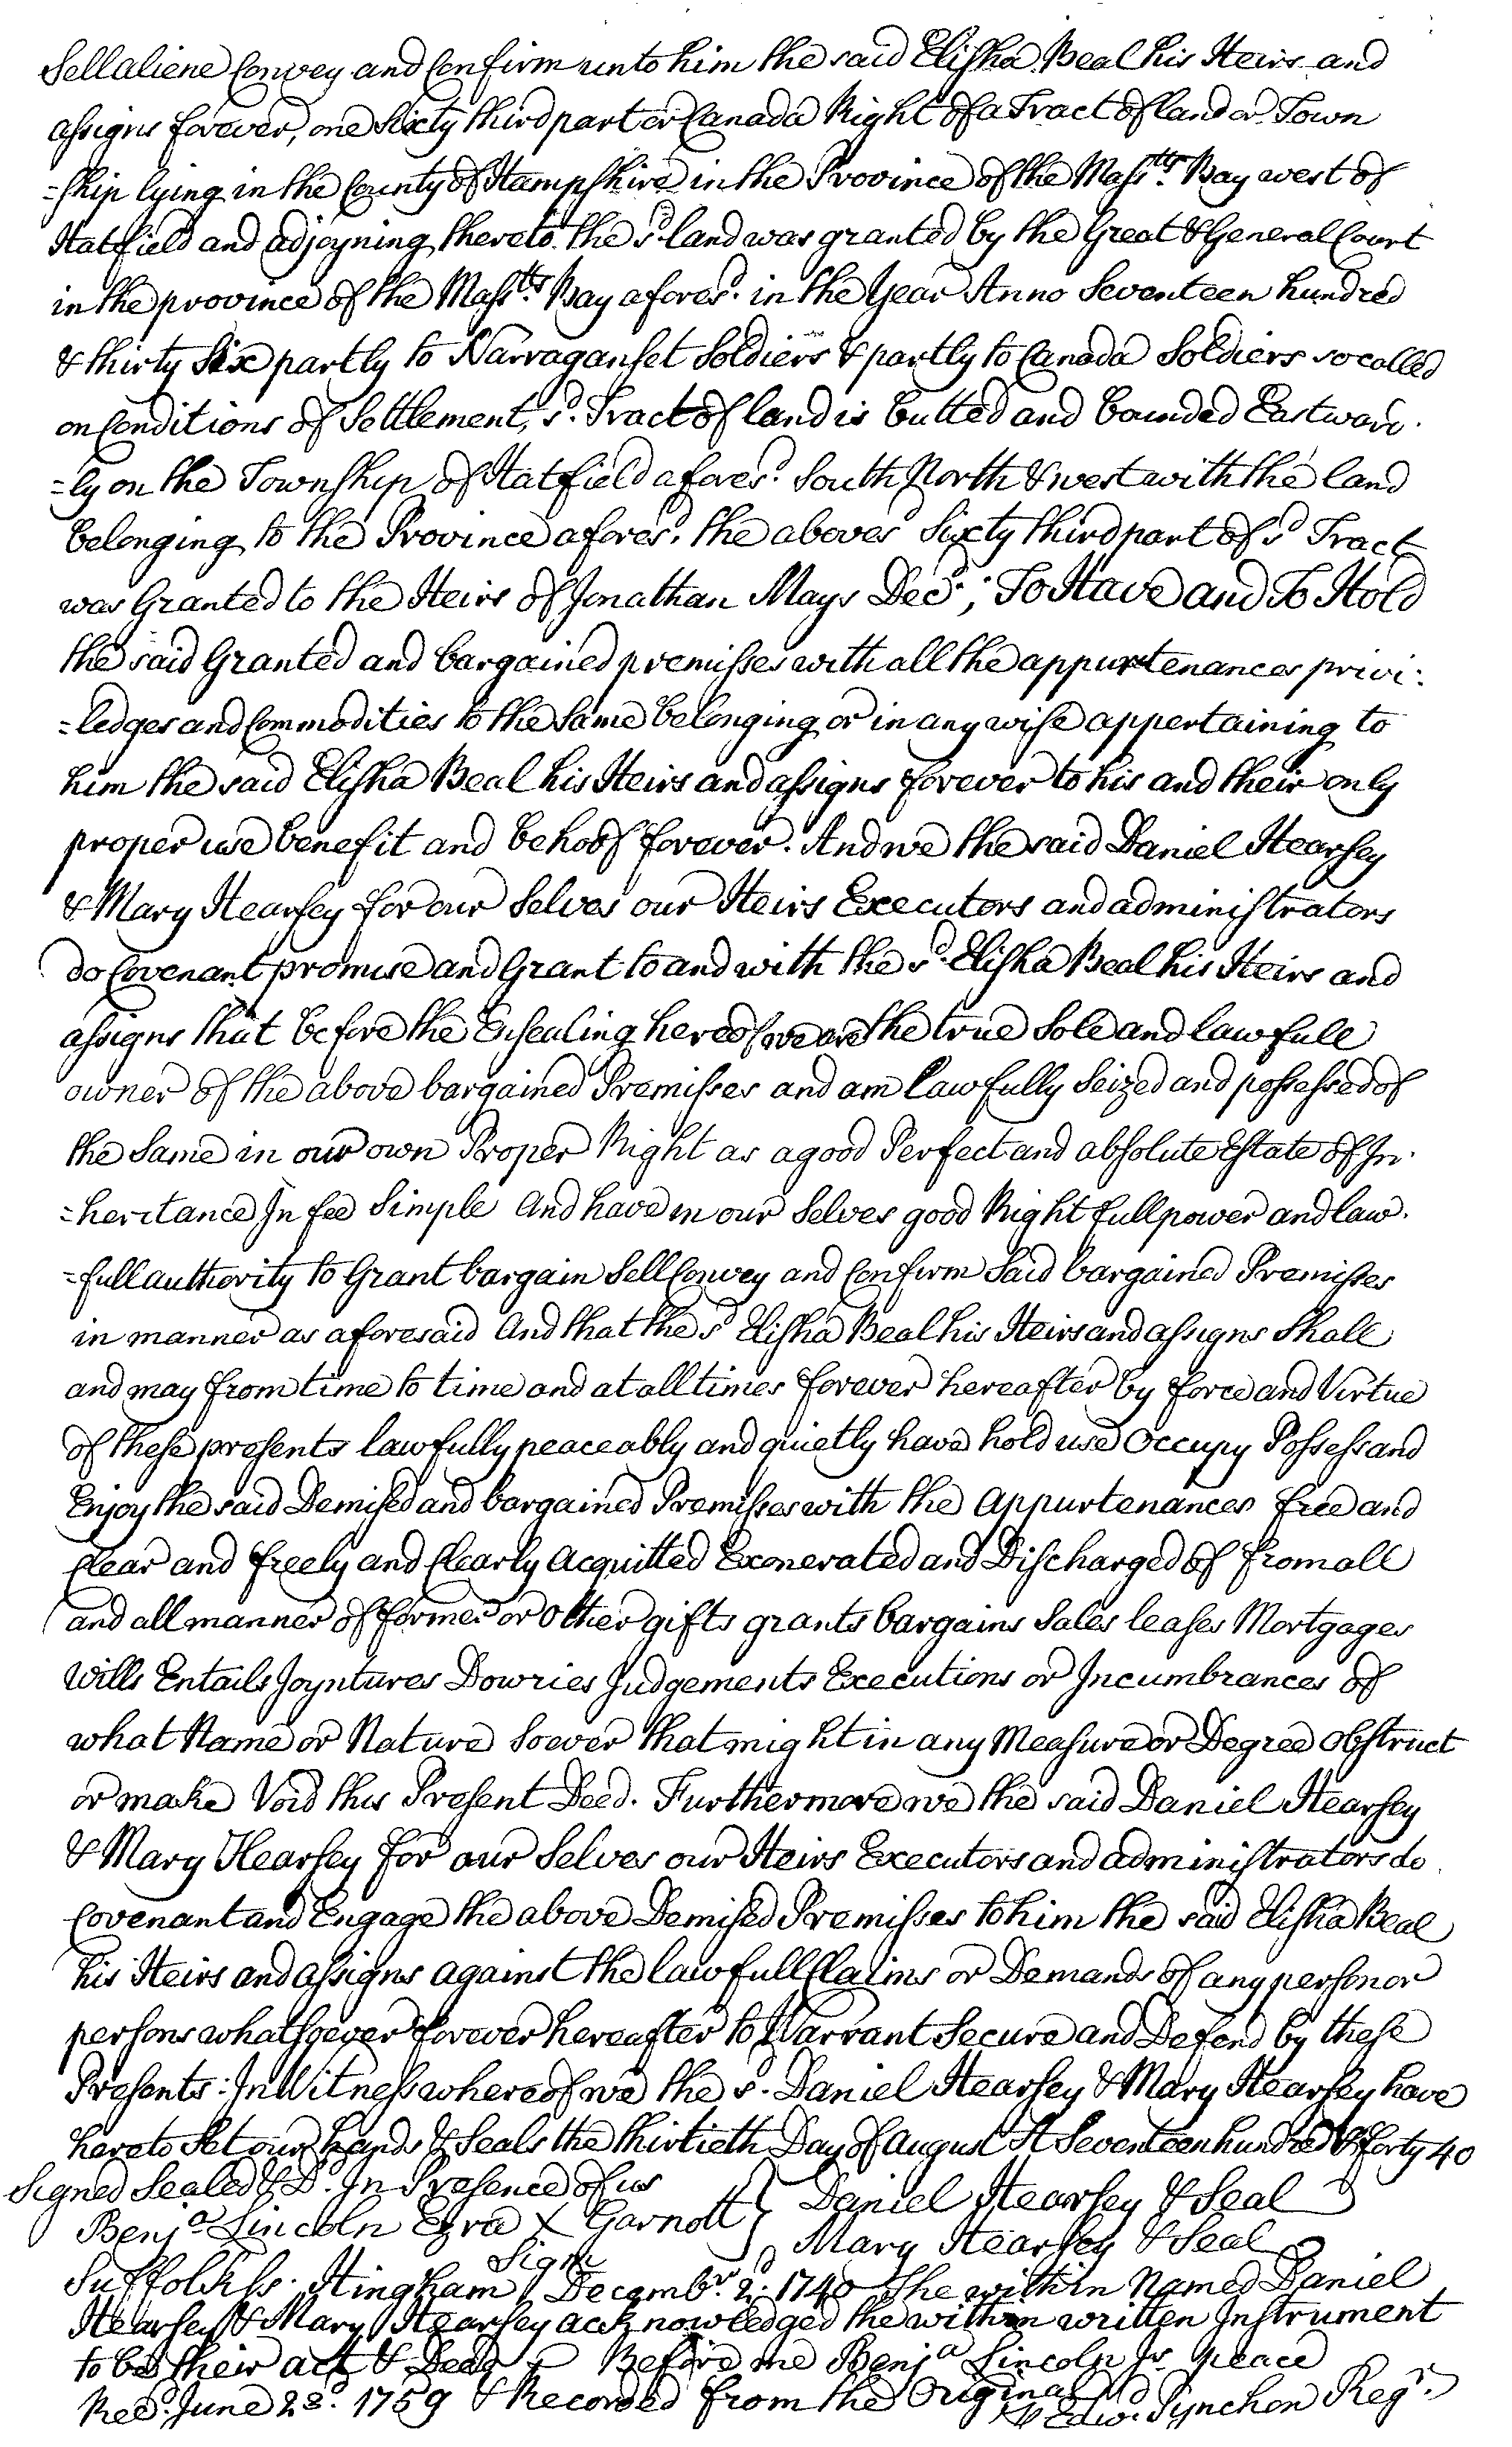 Sell aliene Convey and Confirm unto him the said Elisha Beal his Heirs and
assigns forever, one Sixty third part or Canada Right of a Tract of land or Town
=ship lying in the County of Hampshire in the Province of the Masstts. Bay west of
Hatfield and adjoyning thereto. the sd. land was granted by the Great & General Court
in the province of the Massts. Bay aforesd. in the Year Anno Seventeen hundred
& thirty Six partly to Narraganset Soldiers & partly to Canada Soldiers so called
on Conditions of Settlement, sd. Tract of land is butted and bounded Eastward.
=ly on the Township of Hatfield aforesd. South North & west with the land
belonging to the Province aforesd. the abovesd Sixty third part of sd Tract
was Granted to the Heirs of Jonathan Mays Decd.; To Have and To Hold
the said Granted and bargained premisses with all the appurtenances privi:
=ledges and Commodities to the Same belonging or in any wise appertaining to
him the said Elisha Beal his Heirs and assigns forever to his and their only
proper use benefit and behoof forever. And we the said Daniel Hearsey
& Mary Hearsey for our Selves our Heirs Executors and administrators
do Covenant promise and Grant to and with the sd. Elisha Beal his Heirs and
assigns that before the Ensealing hereof we are the true Sole and lawfull
owner of the above bargained Premisses and am lawfully Seized and possessed of
the Same in our own Proper Right as a good Perfect and absolute Estate of In.
=heritance In fee Simple And have in our Selves good Right full power and law.
=full authority to Grant bargain Sell Convey and Confirm Said bargained Premisses
in manner as aforesaid And that the sd Elisha Beal his Heirs and assigns Shall
and may from time to time and at all times forever hereafter by force and Virtue
of these presents lawfully peaceably and quietly have hold use Occupy Possess and
Enjoy the said Demised and bargained Premisses with the Appurtenances free and
Clear and freely and Clearly Acquitted Exonerated and Discharged of from all
and all manner of former or Other gifts grants bargains Sales leases Mortgages
Wills Entails Joyntures Dowries Judgements Executions or Incumbrances of
what Name or Nature Soever that might in any Measure or Degree Obstruct
or make Void this Present Deed. Furthermore we the said Daniel Hearsey
& Mary Hearsey for our Selves our Heirs Executors and administrators do
Covenant and Engage the above Demised Premisses to him the said Elisha Beal
his Heirs and assigns against the lawfull Claims or Demands of any person or
persons whatsoever forever hereafter to Warrant Secure and Defend by these
Presents: In Witness whereof we the sd. Daniel Hearsey & Mary Hearsey have
hereto Set our hands & Seals the thirtieth Day of August A Seventeen hundred & forty 40
Signed Sealed & Dd. In Presence of us Daniel Hearsey & Seal
Benja Lincoln Ezra X Garnett Mary Hearsey & Seal
Sign
Suffolk ss. Hingham Decembr. 2d. 1740 The within Named Daniel
Hearsey & Mary Hearsey acknowledged the within written Instrument
to be their act & Deed Before me Benja Lincoln Js. peace
Recd. June 28d. 1759 & Recorded from the Original
Edwd. Pynchon Regr.